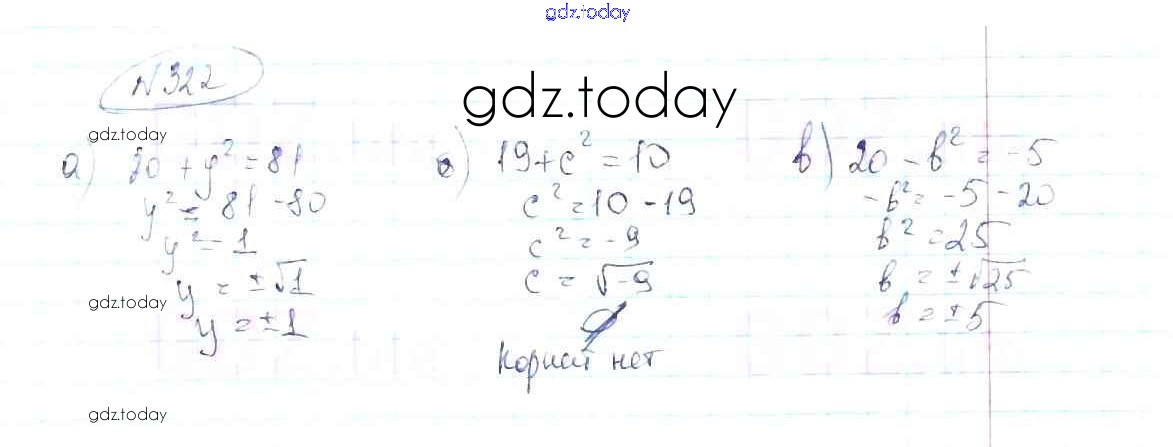 gdz.today
N 322
gdz.today
gdz.today
а) 80 + y² = 81
y² = 81 - 80
y² = 1
y = ±√1
y = ±1
б) 19 + c² = 10
c² = 10 - 19
c² = -9
c = √-9
∅
Корней нет
в) 20 - b² = -5
-b² = -5 - 20
b² = 25
b = ±√25
b = ±5
gdz.today
gdz.today